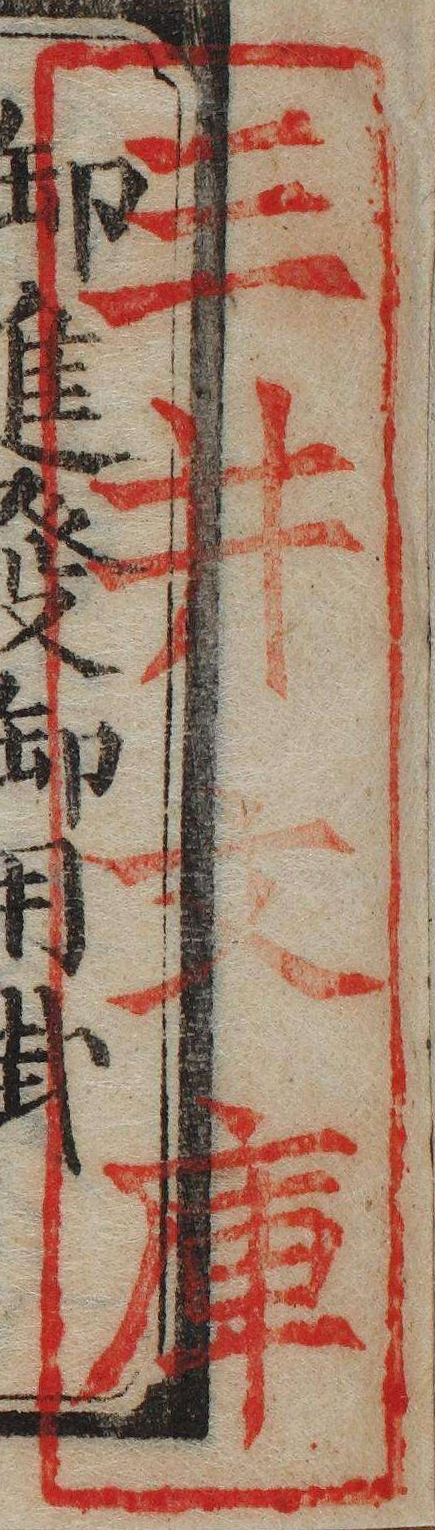 三井文庫
御進発御用掛